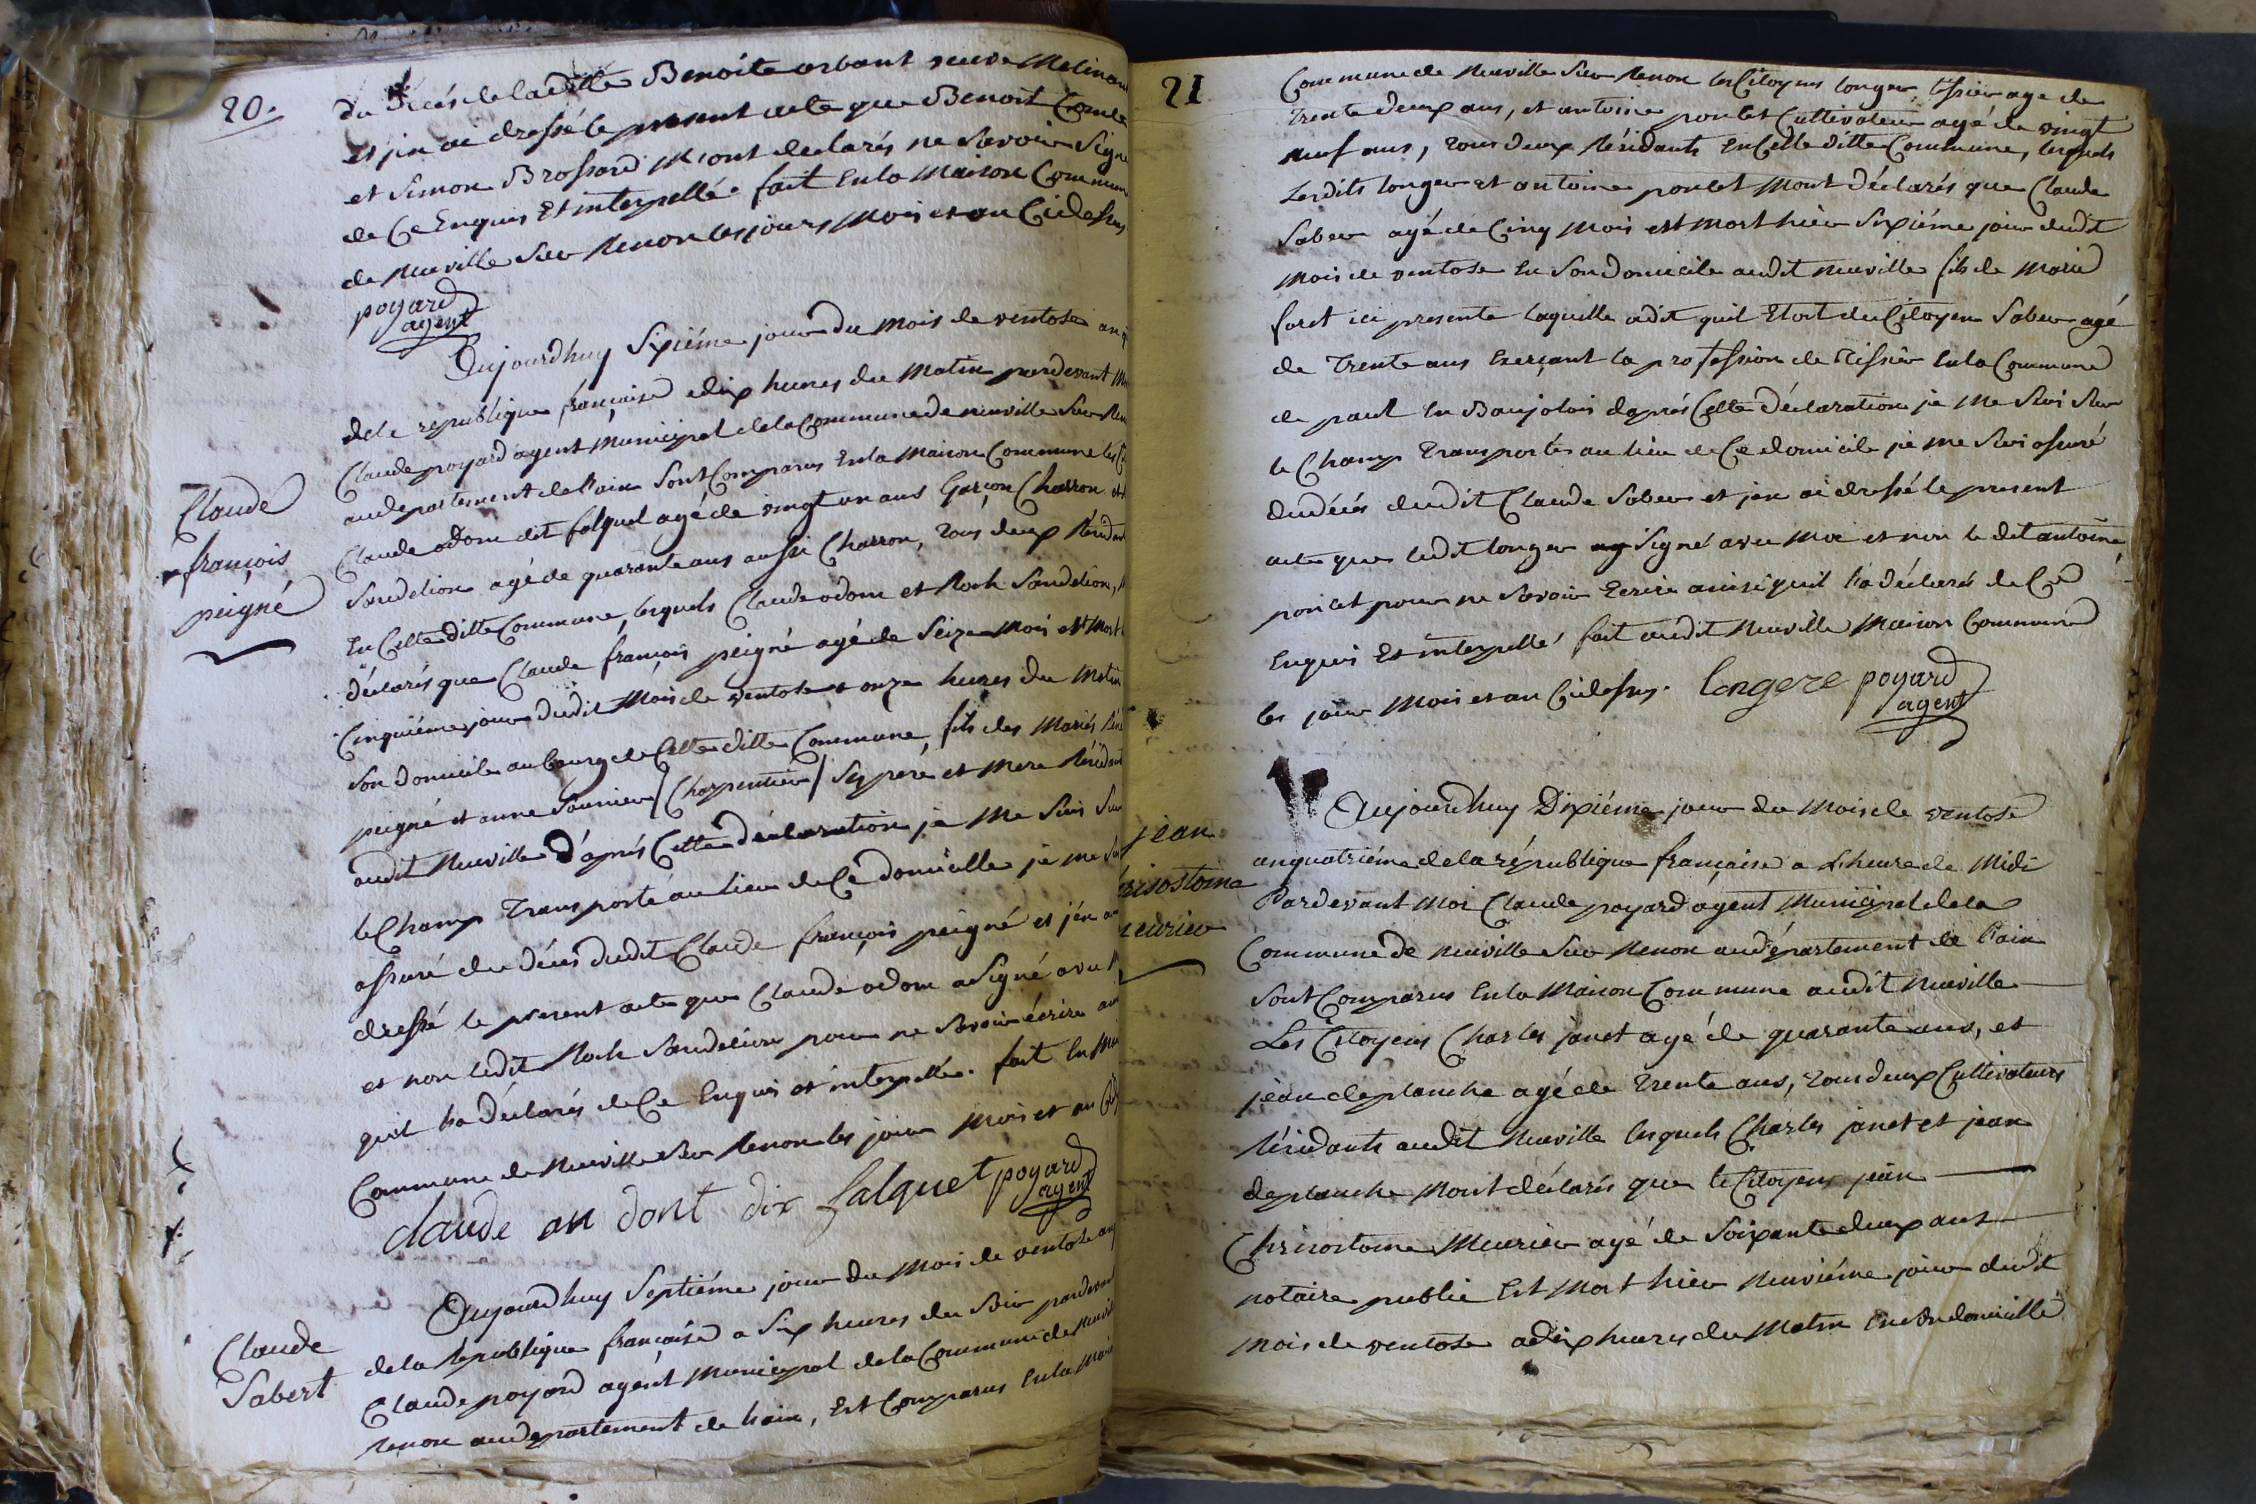 20.
du décés de laditte Benoite orbant veuve
et j'en ai dressé le present acte que Benoit Comte
et Simon Brossard m'ont declarés ne Savoir Signe
de Ce Enquis Et interpellé. fait En la Maison Commun
de Neuville Sur Renon les jours Mois et an Cidessus
poyard
agent
Claude
françois
peigné
Aujourdhuy Sixiéme jour du mois de ventose an
de la republique française a dix heures du Matin pardevant
Claude poyard agent Municipal de la Commune de neuville Sur Ren
au departement de l'ain Sont Comparus En la Maison Commune les
Claude odom dit falquet agé de vingt un ans Garçon Charron et
Soudelion agé de quarante ans aussi Charron, tous deux Résidant
En Cette ditte Commune, lesquels Claude odom et Roch Soudelion,
déclarés que Claude françois peigné agé de Seize Mois est Mort
Cinquiéme jour dudit Mois de ventose a onze heures du Matin
Son domicile au bourg de Cette ditte Commune, fils des Mariés
peigné et anne Saunier / Charpentier / Ses pere et Mere Résidant
audit Neuville D'aprés Cette déclaration je Me Suis Sur
le Champ Transporté au lieu de Ce domicille je me
assuré du décés dudit Claude françois peigné et j'en
dressé le present acte que Claude odom a Signé avec
et non ledit Roch Soudelion pour ne Savoir écrire
quil l'a déclarés de Ce Enquis et interpellé. fait En
Commune de Neuville Sur Renon les jour Mois et an
claude an dont dix falquet poyard
agent
Claude
Sabert
Aujourdhuy Septiéme jour du Mois de ventose an
de la Republique française a Six heures du Soir pardevant
Claude poyard agent Municipal de la Commune de
renon au departement de l'ain, Est Comparus En la
21
Commune de Neuville Sur Renon les Citoyens longer, tessier age de
trente deux ans, et antoine poncet Cultivateur agé de vingt
neuf ans, tous deux Résidants En Cette ditte Commune, lesquels
Lesdits longer et antoine poncet M'ont déclarés que Claude
Saber agé de Cinq Mois est Mort hier Sixiéme jour dudit
Mois de ventose En Son domicile audit neuville fils de Marie
foret ici presente laquelle a dit quil Etoit du Citoyen Saber agé
de Trente ans Exerçant la profession de Tissier En la Commune
de paul En Baujolois d'aprés Cette déclaration je Me Suis Sur
le Champ Transportés au lieu de Ce domicile je me Suis assuré
du décés dudit Claude Saber et j'en ai dressé le present
acte que ledit longer Signé avec Moi et non le dit antoine
poncet pour ne Savoir Ecrire ainsi quil l'a déclarés de Ce
Enquis Et interpellé fait audit Neuville Maison Commune
les jour Mois et an Cidessus. longere poyard
agent
jean
risostome
eurier
Aujourdhuy Dixiéme jour du Mois de ventose
an quatriéme de la république française a L'heure de Midi
Pardevant Moi Claude poyard agent Municipal de la
Commune de neuville Sur Renon au département de l'ain
Sont Comparus En la Maison Commune audit Neuville
Les Citoyens Charles janet agé de quarante ans, et
jean deplanche agé de Trente ans, tous deux Cultivateurs
Résidants audit Neuville lesquels Charles janet et jean
deplanche M'ont déclarés que le Citoyen jean
Chrisostome Meurier agé de Soixante deux ans
notaire public Est Mort hier Neuviéme jour dudit
Mois de ventose a dix heures du Matin En Son domicille